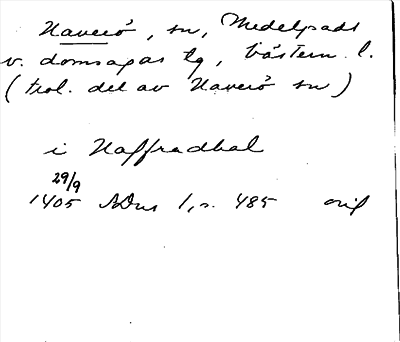 Haverö, sn, Medelpads
v. domsagas tg, Västern. l.
(trol. del av Haverö sn)
i Haffradhal
29/9
1405 SDns 1, s. 485 orig